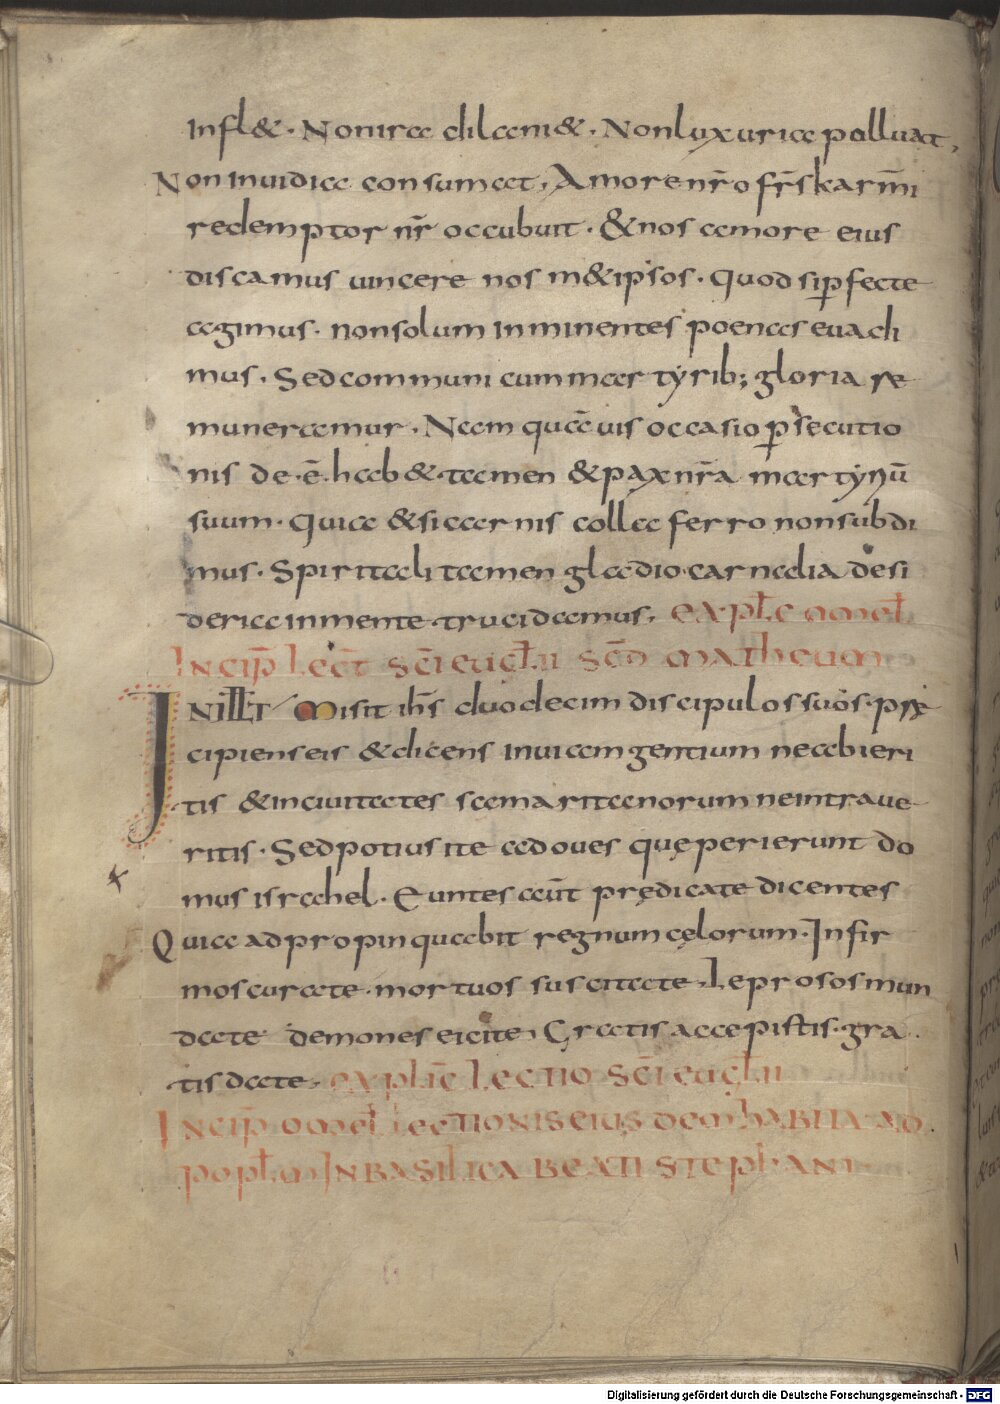 Infl&. Non ira dilani&. Non luxuria polluat,
Non inuidia consumat, Amore nr̄o fr̄s karm̄i
redemptor nr̄ occubuit. & nos amore eius
discamus uincere nos m&ipsos. quod si p̄fecte
agimus. non solum inminentes poenas euadi
mus. Sed communi cum martyrib; gloria re
muneramur. Nam quāuis occasio p̄secutio
nis de.ē. hab& tamen & pax nr̄a martyriū
suum. quia &si carnis colla ferro non subdi
mus. Spiritali tamen gladio carnalia desi
deria in mente trucidamus. expl̄c omel̄
Incip̄ Lect̄ sc̄i eugl̄ii scd̄ matheum
IN ill̄ t̄ Misit ih̄s duodecim discipulos suos. præ
cipiens eis & dicens In uiam gentium ne abieri
tis & in ciuitates samaritanorum ne intraue
ritis. Sed potius ite ad oues quę perierunt do
mus israhel. Euntes aūt prędicate dicentes
Quia adpropinquabit regnum cęlorum. Infir
mos curate. mortuos suscitate. Leprosos mun
date demones eicite, Gratis accepistis. gra
tis date. explic̄ Lectio sc̄i eugl̄ii
Incip̄ omel̄ lectionis eiusdem habita ad
popl̄m In basilica beati stephani
Digitalisierung gefördert durch die Deutsche Forschungsgemeinschaft - DFG